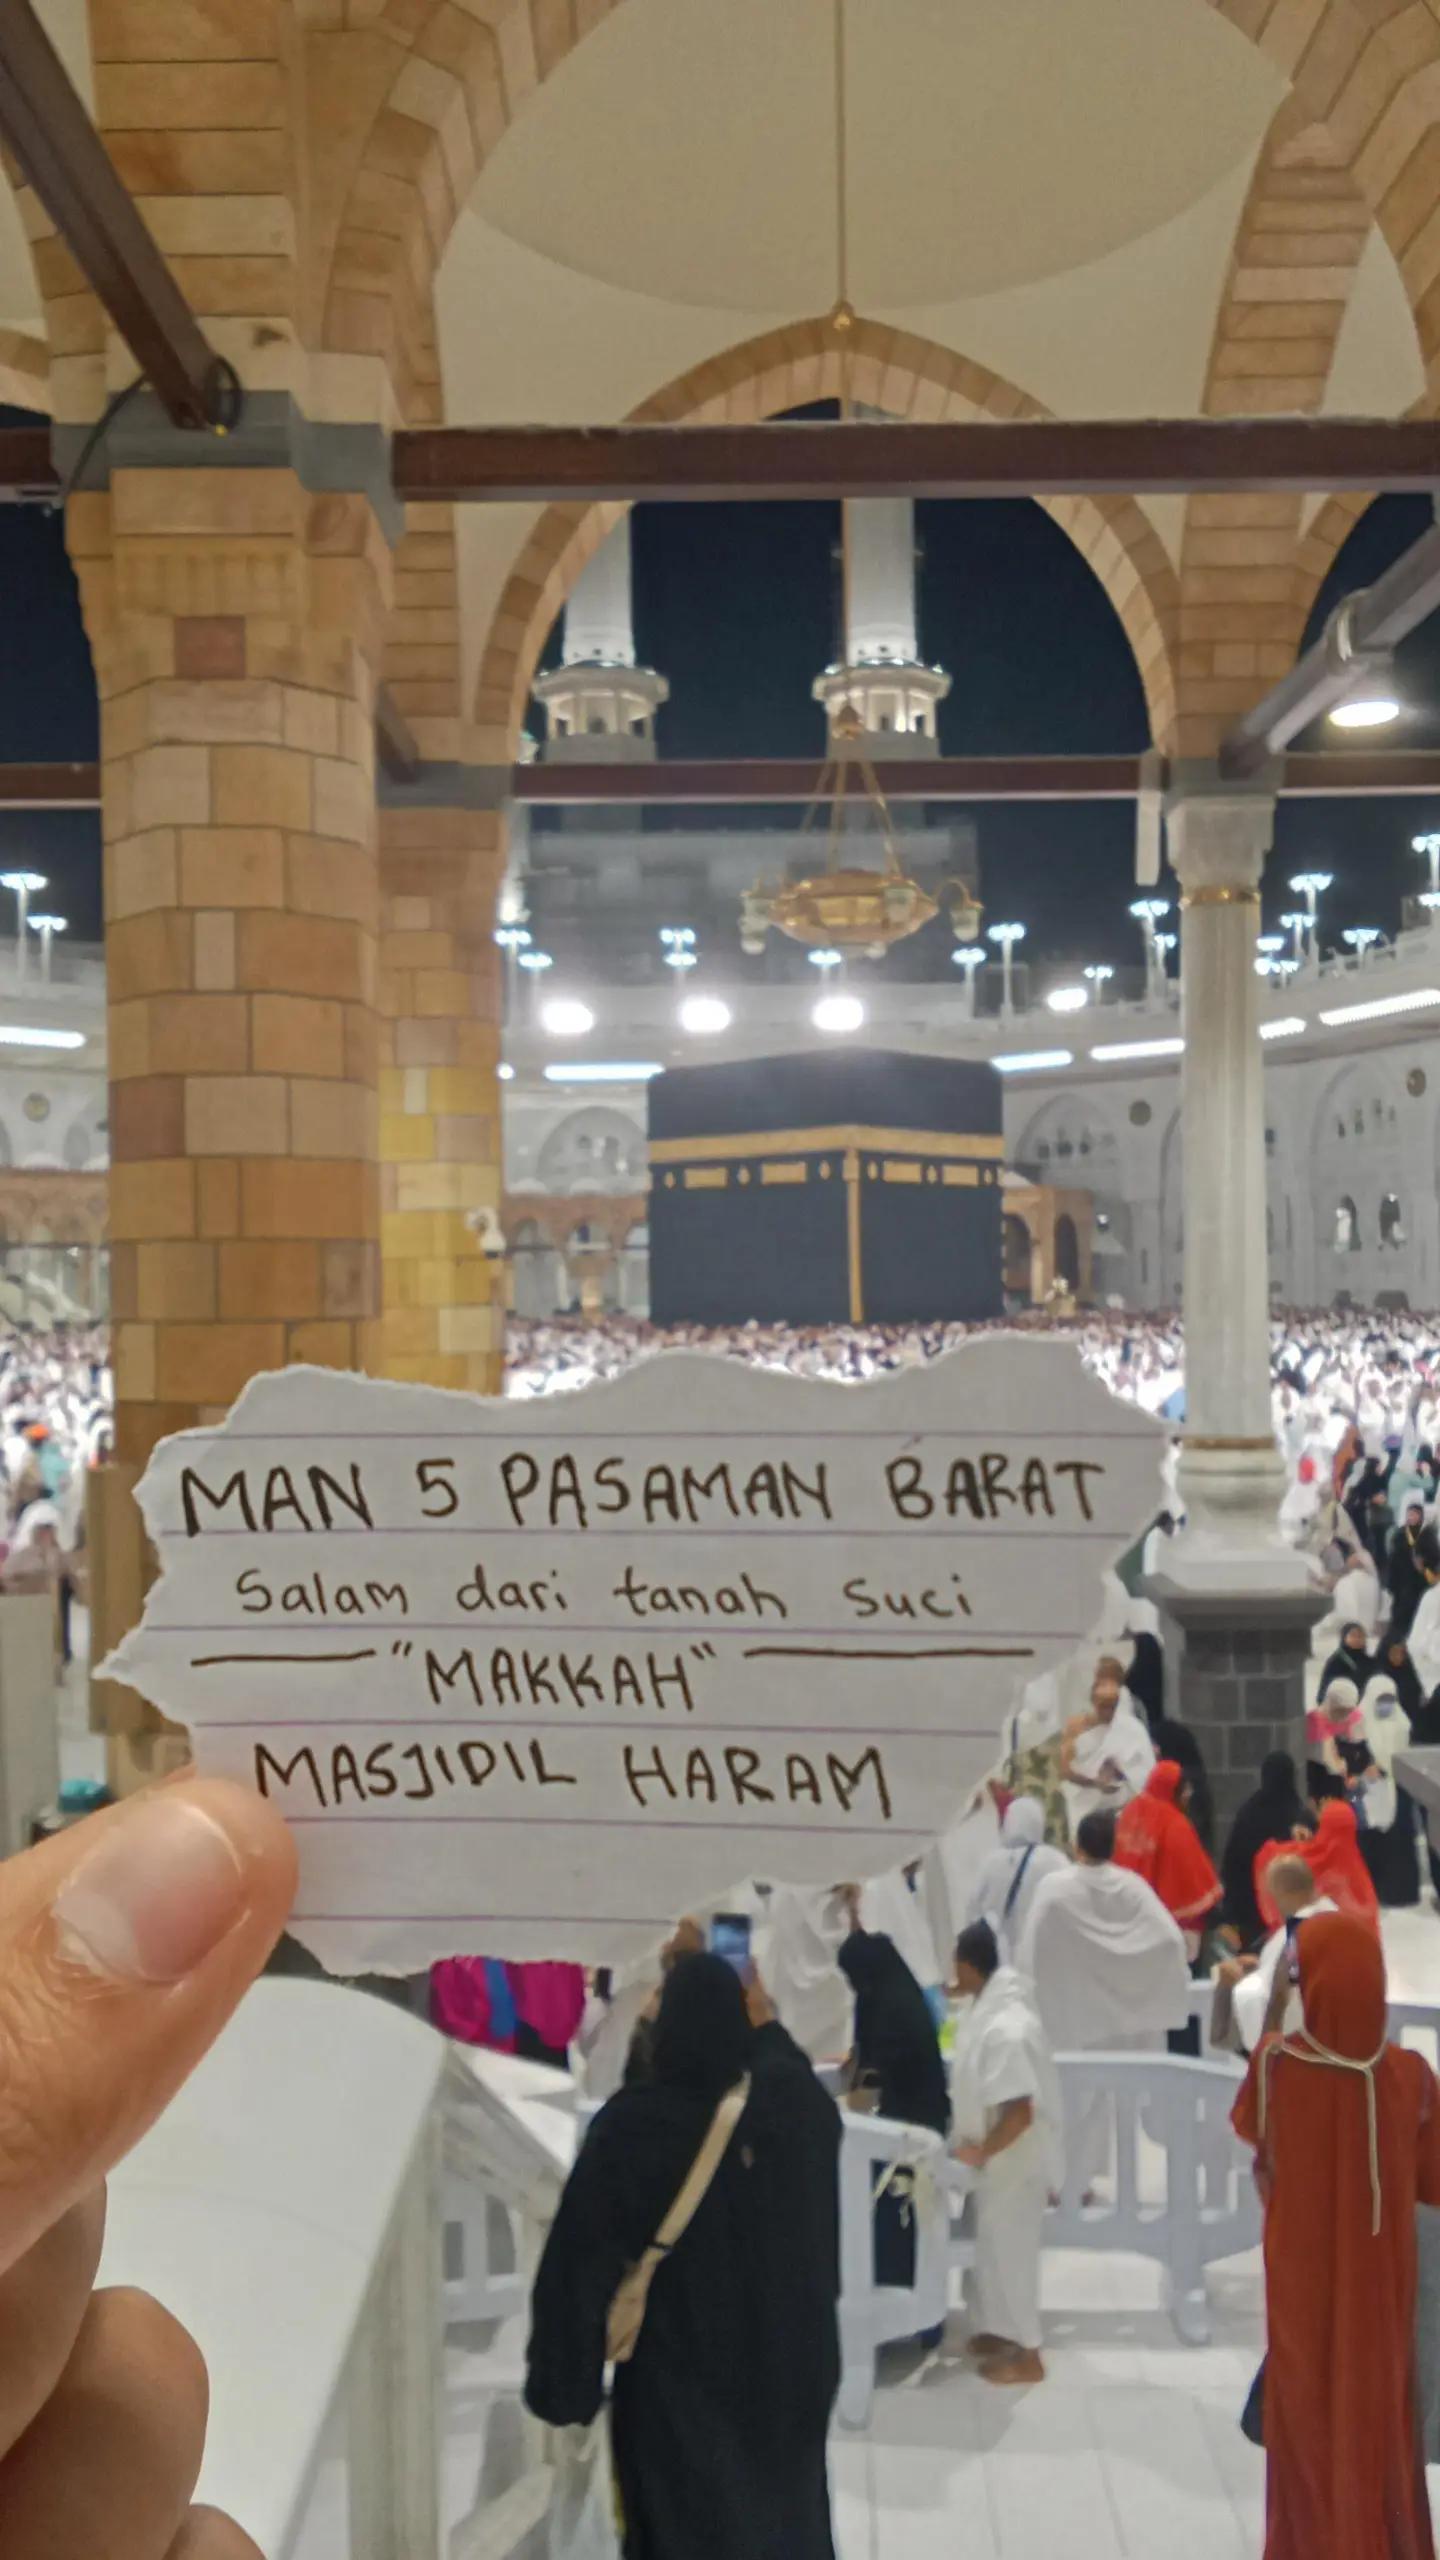 MAN 5 PASAMAN BARAT
Salam dari tanah Suci
"MAKKAH"
MASJIDIL HARAM